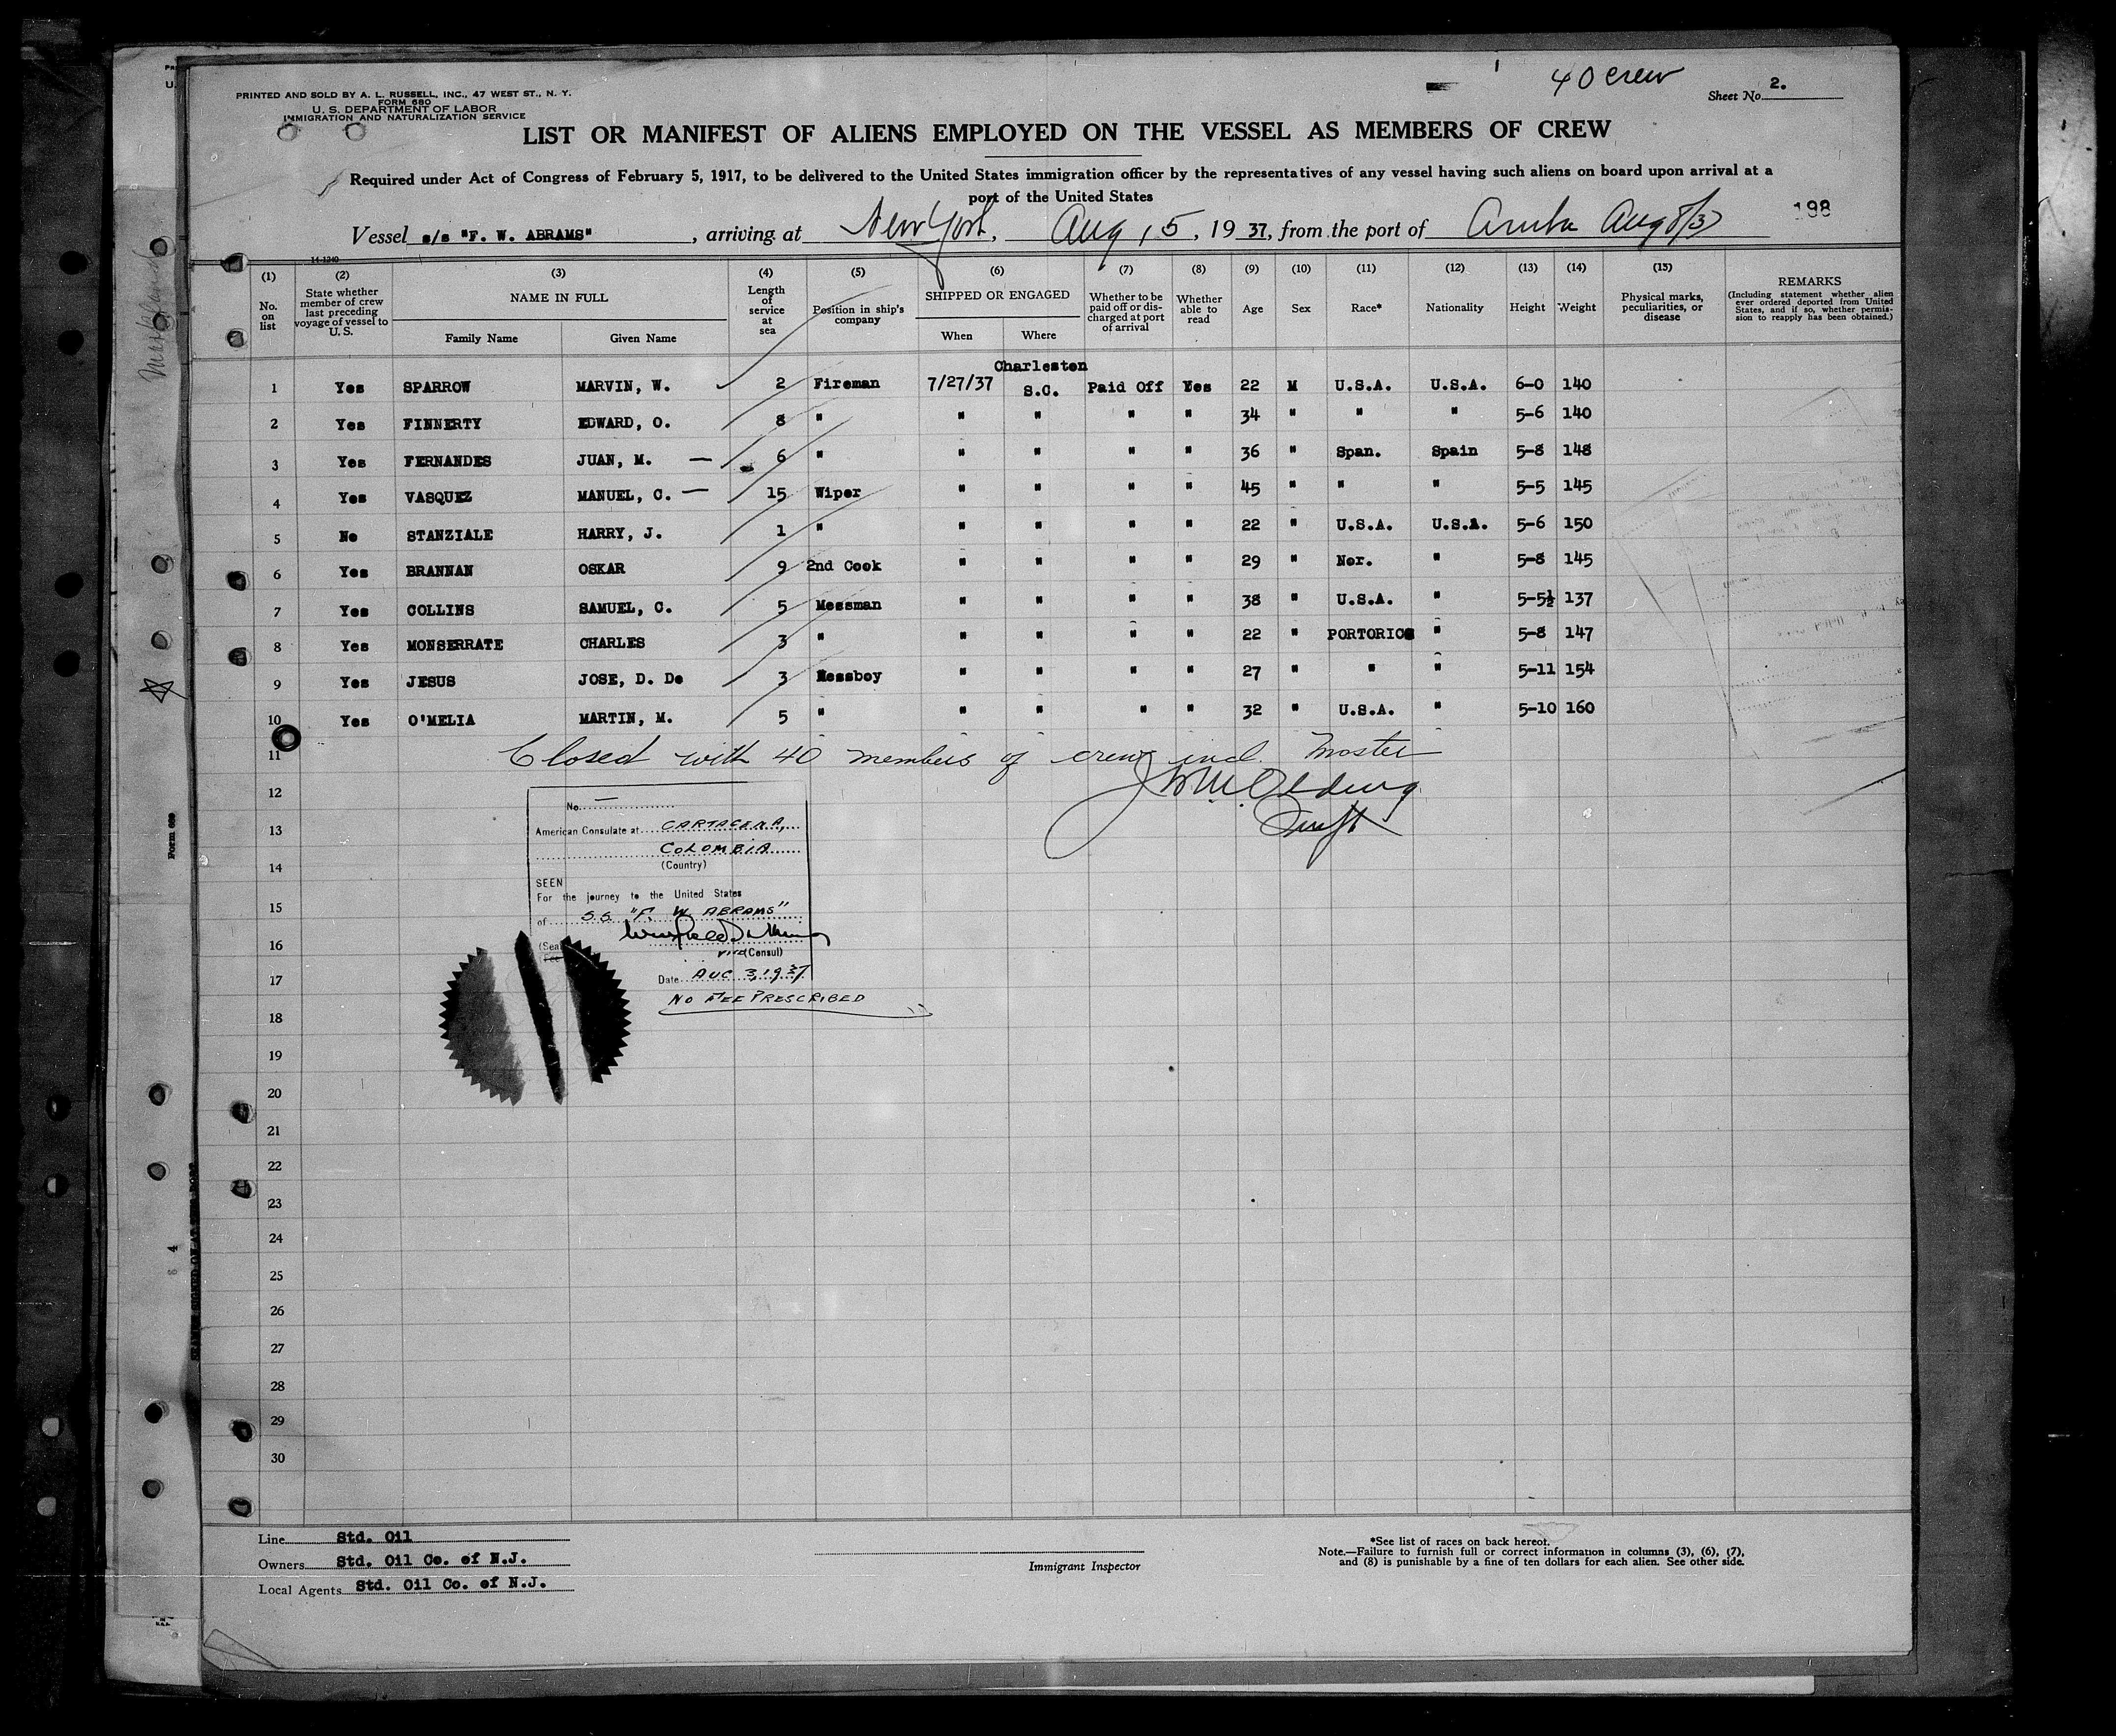 40 crew
Sheet No. 2.
PRINTED AND SOLD BY A. L. RUSSELL, INC., 47 WEST ST., N. Y.
FORM 680
U. S. DEPARTMENT OF LABOR
IMMIGRATION AND NATURALIZATION SERVICE
LIST OR MANIFEST OF ALIENS EMPLOYED ON THE VESSEL AS MEMBERS OF CREW
Required under Act of Congress of February 5, 1917, to be delivered to the United States immigration officer by the representatives of any vessel having such aliens on board upon arrival at a
port of the United States
198
Vessel s/s "F. W. ABRAMS", arriving at New York, Aug 15, 1937, from the port of Aruba Aug 8/37
14-1240
(1) (2) (3) (4) (5) (6) (7) (8) (9) (10) (11) (12) (13) (14) (15)
No. on list
State whether member of crew last preceding voyage of vessel to U. S.
NAME IN FULL
Family Name Given Name
Length of service at sea
Position in ship's company
SHIPPED OR ENGAGED
When Where
Whether to be paid off or discharged at port of arrival
Whether able to read
Age Sex Race* Nationality Height Weight
Physical marks, peculiarities, or disease
REMARKS
(Including statement whether alien ever ordered deported from United States, and if so, whether permission to reapply has been obtained.)
1 Yes SPARROW MARVIN, W. 2 Fireman 7/27/37 Charleston S.C. Paid Off Yes 22 M U.S.A. U.S.A. 6-0 140
2 Yes FINNERTY EDWARD, O. 8 " " " " " 34 " " " 5-6 140
3 Yes FERNANDES JUAN, M. — 6 " " " " " 36 " Span. Spain 5-8 148
4 Yes VASQUEZ MANUEL, C. — 15 Wiper " " " " 45 " " " 5-5 145
5 No STANZIALE HARRY, J. 1 " " " " " 22 " U.S.A. U.S.A. 5-6 150
6 Yes BRANNAN OSKAR 9 2nd Cook " " " " 29 " Nor. " 5-8 145
7 Yes COLLINS SAMUEL, C. 5 Messman " " " " 38 " U.S.A. " 5-5½ 137
8 Yes MONSERRATE CHARLES 3 " " " " " 22 " PORTORICO " 5-8 147
9 Yes JESUS JOSE, D. De 3 Messboy " " " " 27 " " " 5-11 154
10 Yes O'MELIA MARTIN, M. 5 " " " " " 32 " U.S.A. " 5-10 160
11 Closed with 40 members of crew incl. Master
12
13
14
15
16
17
18
19
20
21
22
23
24
25
26
27
28
29
30
No. —
American Consulate at CARTAGENA,
COLOMBIA
(Country)
SEEN
For the journey to the United States
of SS "F. W. ABRAMS"
(Seal
Fee
vice (Consul)
Date AUG 3, 1937
NO FEE PRESCRIBED
Line Std. Oil
Owners Std. Oil Co. of N.J.
Local Agents Std. Oil Co. of N.J.
Immigrant Inspector
*See list of races on back hereof.
Note.—Failure to furnish full or correct information in columns (3), (6), (7),
and (8) is punishable by a fine of ten dollars for each alien. See other side.
Form 689